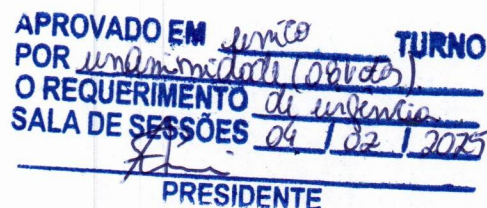 APROVADO EM único TURNO
POR unanimidade (08 votos)
O REQUERIMENTO de urgência
SALA DE SESSÕES 04 / 02 / 2025
PRESIDENTE